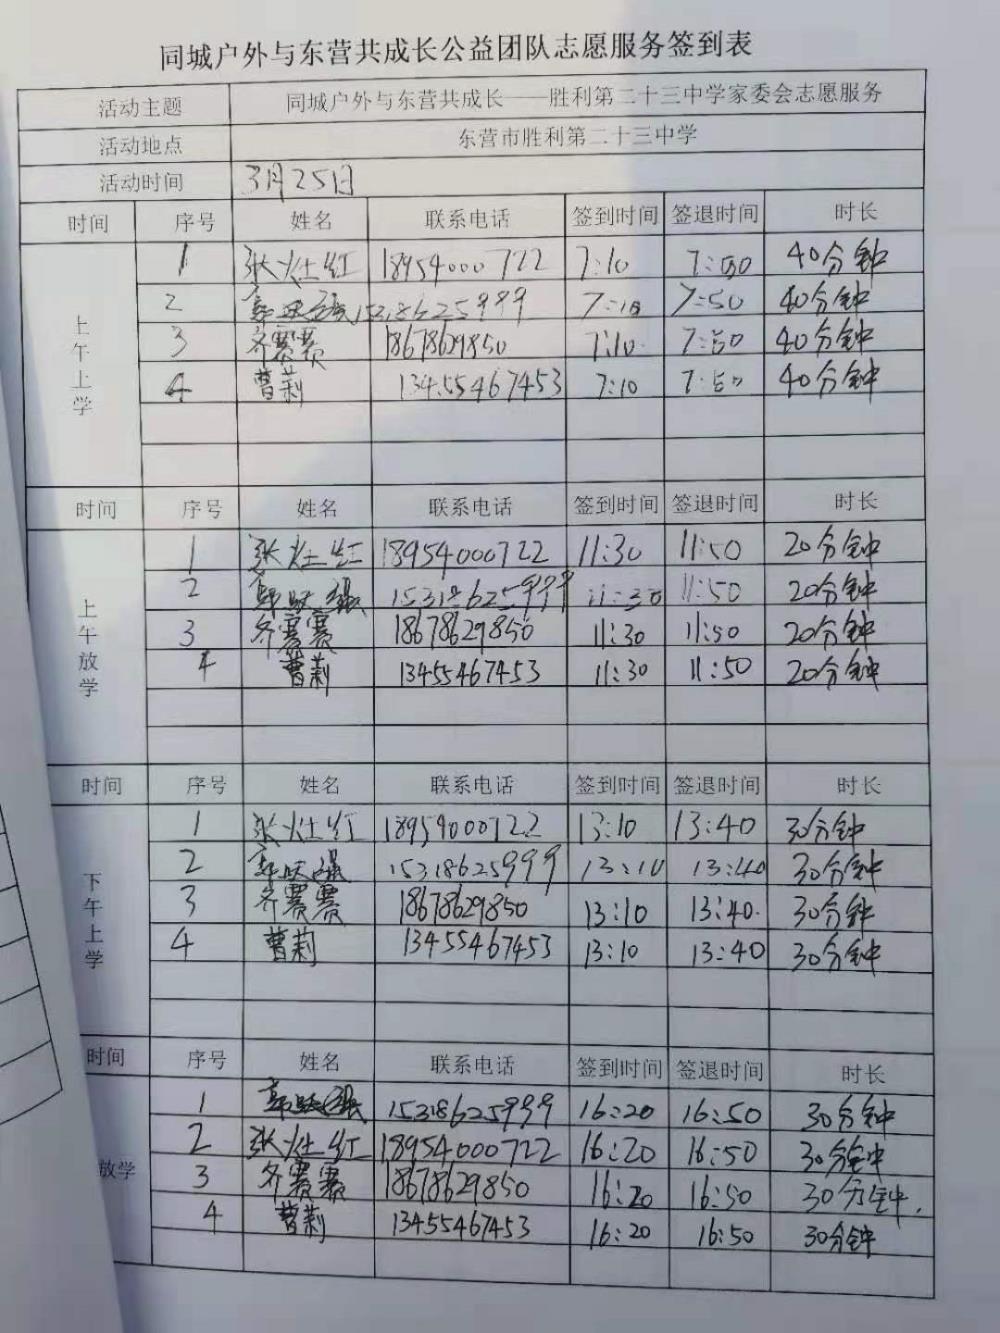 同城户外与东营共成长公益团队志愿服务签到表
活动主题 同城户外与东营共成长——胜利第二十三中学家委会志愿服务
活动地点 东营市胜利第二十三中学
活动时间 3月25日
时间 序号 姓名 联系电话 签到时间 签退时间 时长
上午上学
1 张灶红 18954000722 7:10 7:50 40分钟
2 15318625999 7:10 7:50 40分钟
3 齐赛赛 18678629850 7:10 7:50 40分钟
4 曹莉 13455467453 7:10 7:50 40分钟
时间 序号 姓名 联系电话 签到时间 签退时间 时长
上午放学
1 张灶红 18954000722 11:30 11:50 20分钟
2 15318625999 11:30 11:50 20分钟
3 齐赛赛 18678629850 11:30 11:50 20分钟
4 曹莉 13455467453 11:30 11:50 20分钟
时间 序号 姓名 联系电话 签到时间 签退时间 时长
下午上学
1 张灶红 18954000722 13:10 13:40 30分钟
2 15318625999 13:10 13:40 30分钟
3 齐赛赛 18678629850 13:10 13:40. 30分钟
4 曹莉 13455467453 13:10 13:40 30分钟
时间 序号 姓名 联系电话 签到时间 签退时间 时长
放学
1 15318625999 16:20 16:50 30分钟
2 张灶红 18954000722 16:20 16:50 30分钟
3 齐赛赛 18678629850 16:20 16:50 30分钟.
4 曹莉 13455467453 16:20 16:50 30分钟